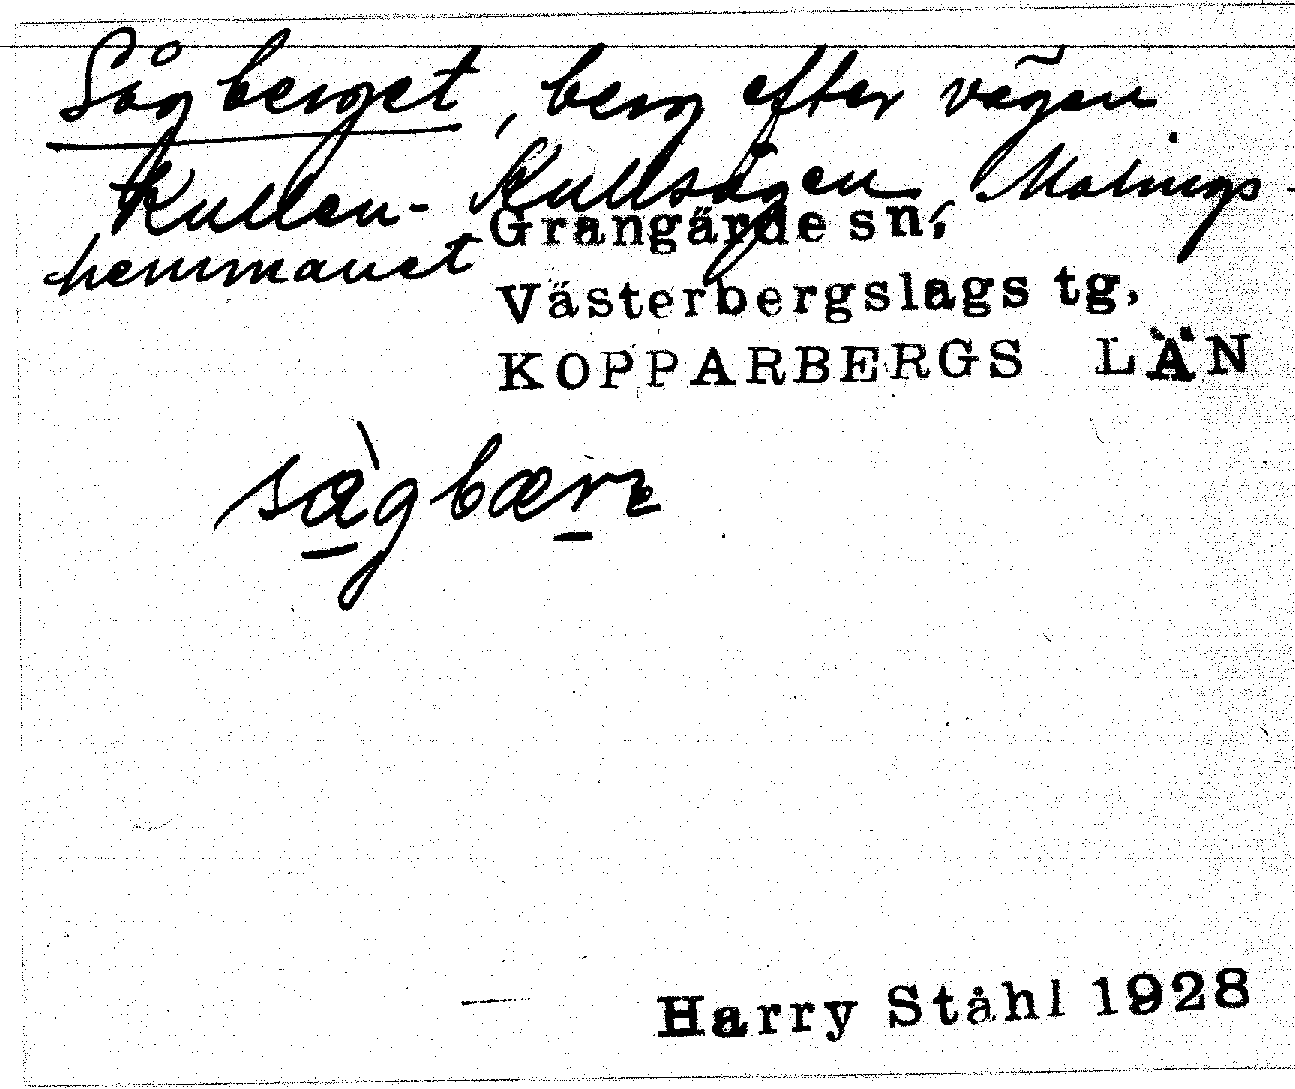 Sågberget, berg efter vägen
Kullen- Kullsågen, Malnigs-
hemmanet
Grangärde sn,
Västerbergslags tg,
KOPPARBERGS LÄN
sàgbærɛ
Harry Ståhl 1928